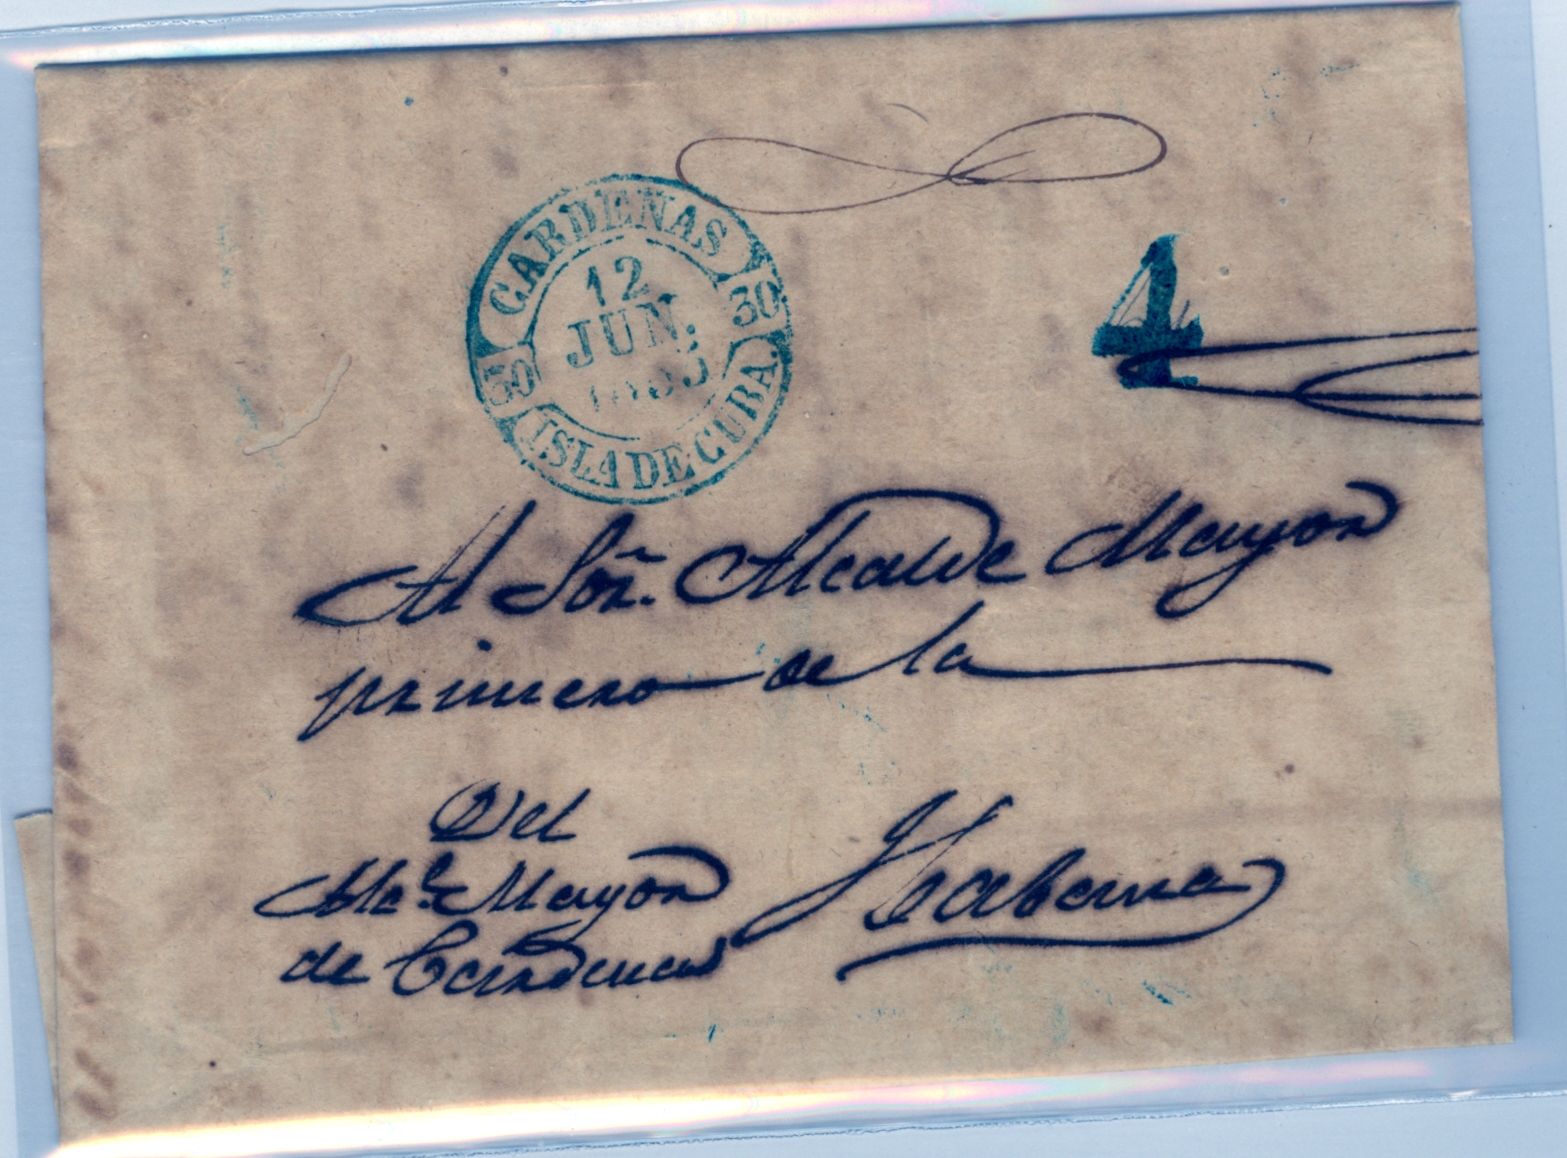 CARDENAS
30
12
JUN.
30
ISLA DE CUBA.
4
Al Sor. Alcalde Mayor
primero de la
Habana
Del
Ale. Mayor
de Cardenas